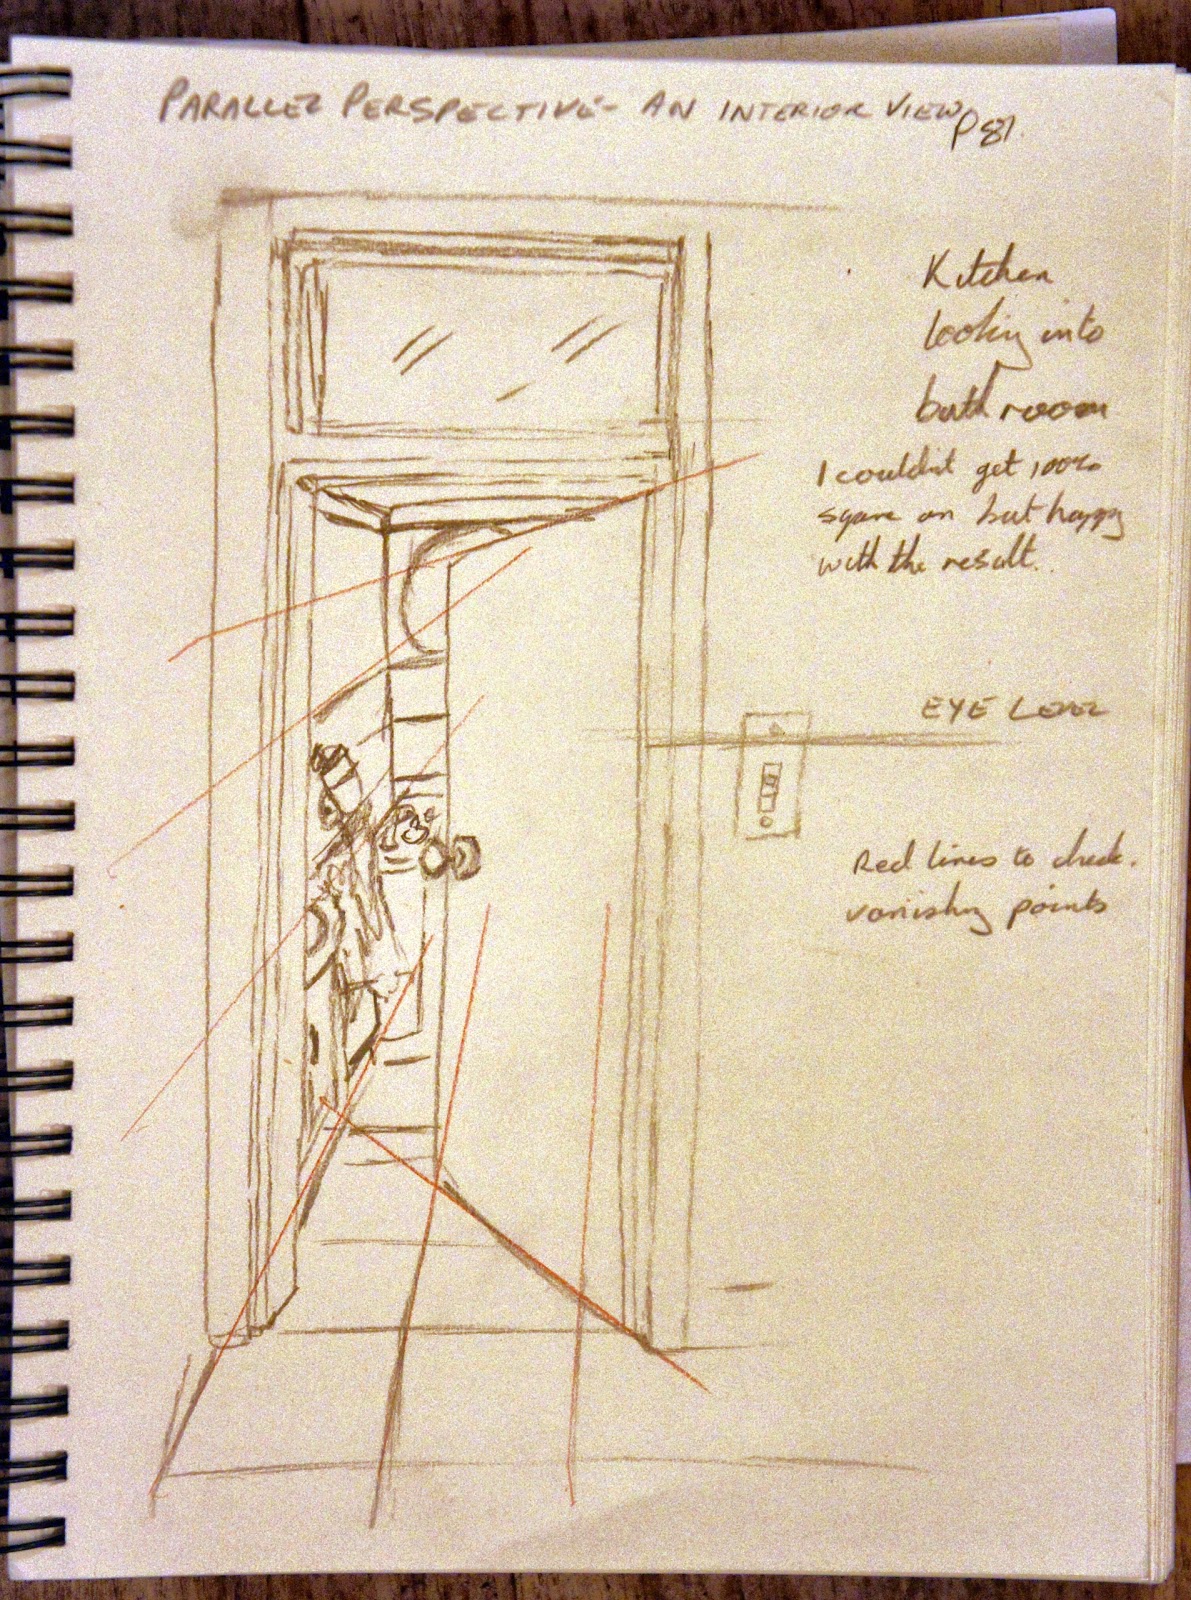 PARALLEL PERSPECTIVE - AN INTERIOR VIEW
P 81.
Kitchen
looking into
bathroom
I couldn't get 100%
square on but happy
with the result.
EYE LEVEL
Red lines to check
vanishing points